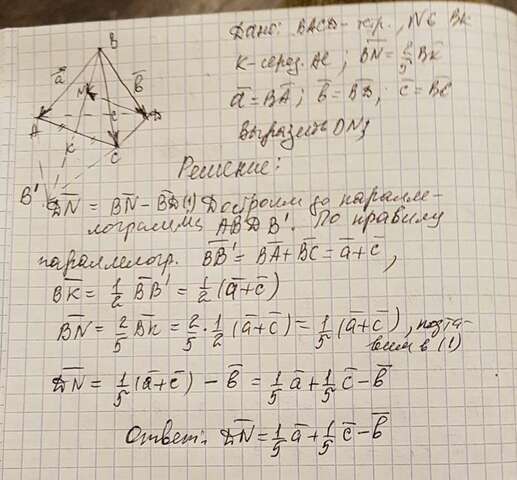 Дано: BACD - тетр., N ∈ BK
K - серед. AC; B̅N̅ = 2/5 B̅K̅
a̅ = B̅A̅; b̅ = B̅D̅; c̅ = B̅C̅
Выразить DN
B
a̅
b̅
N
K
A
c̅
D
K
C
B'
Решение:
D̅N̅ = B̅N̅ - B̅D̅ (1) Достроим до паралле-
лограмма ABDB'. По правилу
параллелогр. B̅B̅'̅ = B̅A̅ + B̅C̅ = a̅ + c̅,
B̅K̅ = 1/2 B̅B̅'̅ = 1/2 (a̅ + c̅)
B̅N̅ = 2/5 B̅K̅ = 2/5 · 1/2 (a̅ + c̅) = 1/5 (a̅ + c̅), подста-
вим в (1)
D̅N̅ = 1/5 (a̅ + c̅) - b̅ = 1/5 a̅ + 1/5 c̅ - b̅
Ответ: D̅N̅ = 1/5 a̅ + 1/5 c̅ - b̅